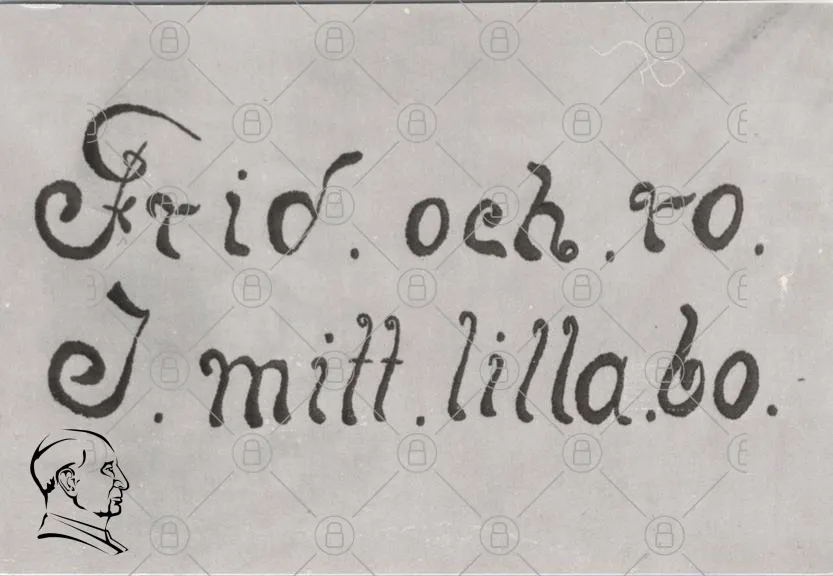 Frid. och. ro.
I. mitt. lilla. bo.